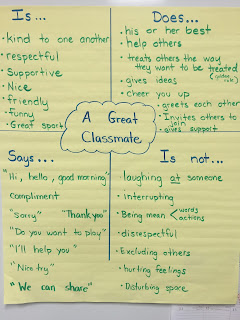 Is...
• kind to one another
• respectful
• Supportive
• Nice
• friendly
• funny
• Great sport
Does...
• his or her best
• help others
• treats others the way
they want to be treated
(golden rule)
• gives ideas
• cheer you up
• greets each other
• Invites others to
join
• gives support
A Great
Classmate
Says...
"Hi, hello, good morning"
Compliment
"Sorry" "Thank you"
"Do you want to play"
"I'll help you"
"Nice try"
"We can share"
Is not...
• laughing at someone
• interrupting
• Being mean words
actions
• disrespectful
• Excluding others
• hurting feelings
• Disturbing space